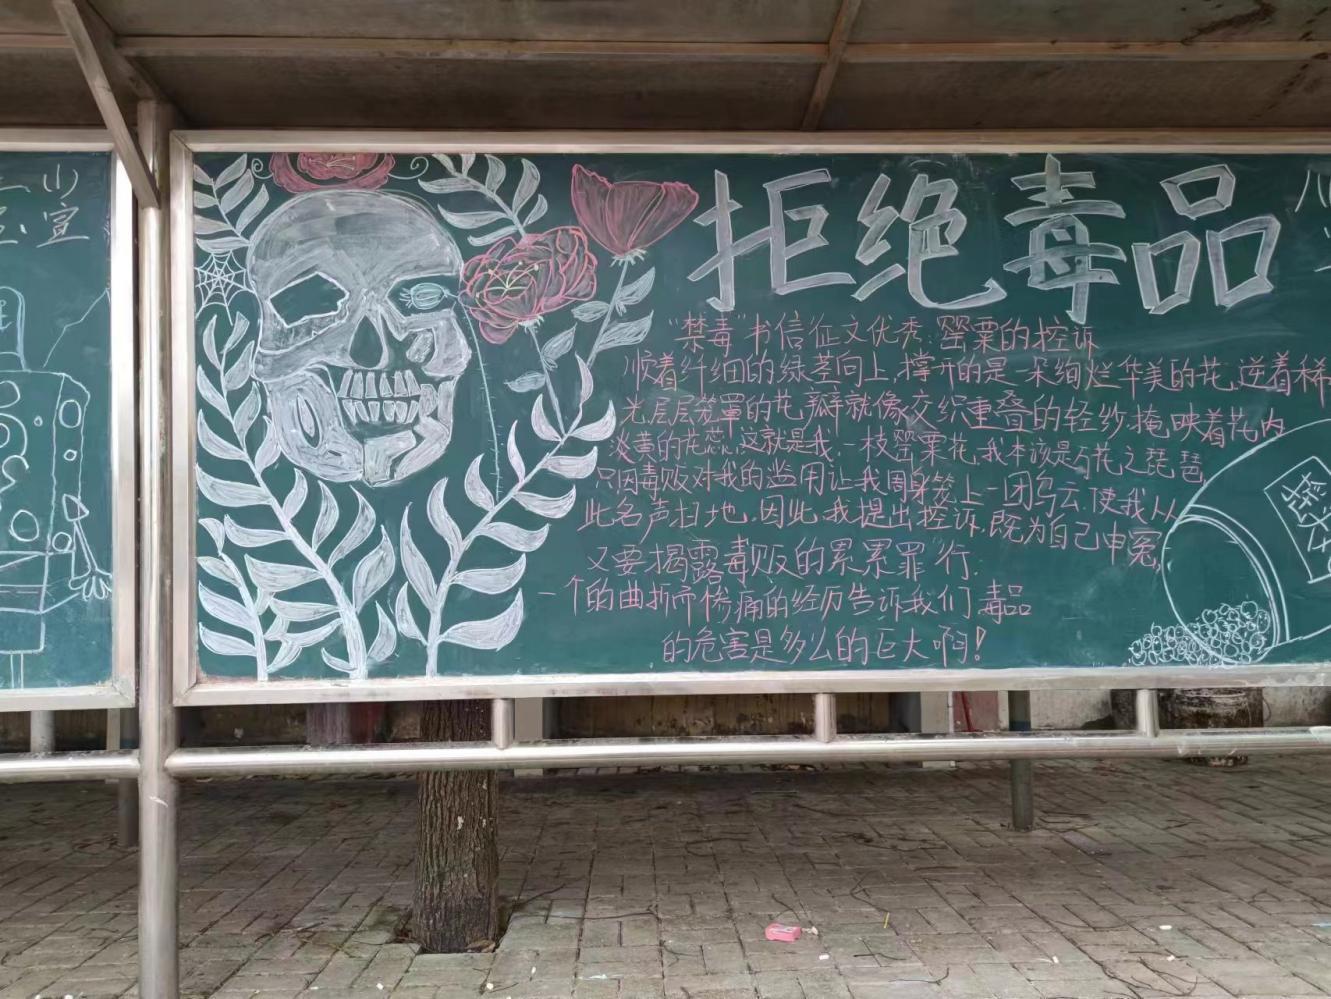 拒绝毒品
"禁毒"书信征文优秀:罂粟的控诉
顺着纤细的绿茎向上,撑开的是一朵绚烂华美的花,逆着稀
光,层层笼罩的花瓣就像交织重叠的轻纱,掩映着花内
淡黄的花蕊,这就是我,一枝罂粟花,我本该是万花之琵琶
只因毒贩对我的滥用让我周身笼上一团乌云,使我从
此名声扫地,因此,我提出控诉,既为自己申冤,
又要揭露毒贩的累累罪行.
一个的曲折而惨痛的经历告诉我们毒品
的危害是多么的巨大啊!
宣